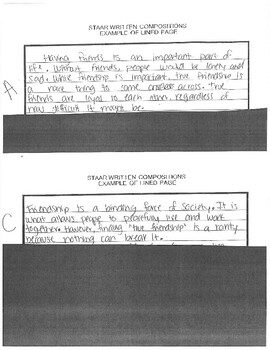 STAAR WRITTEN COMPOSITIONS
EXAMPLE OF LINED PAGE
Having friends is an important part of
life. Without friends, people would be lonely and
sad. While friendship is important, true friendship is
a rare thing to come across. True
friends are loyal to each other, regardless of
how difficult it might be.
A
STAAR WRITTEN COMPOSITIONS
EXAMPLE OF LINED PAGE
Friendship is a binding force of society. It is
what allows people to peacefully live and work
together. However, finding "true friendship" is a rarity
because nothing can break it.
C